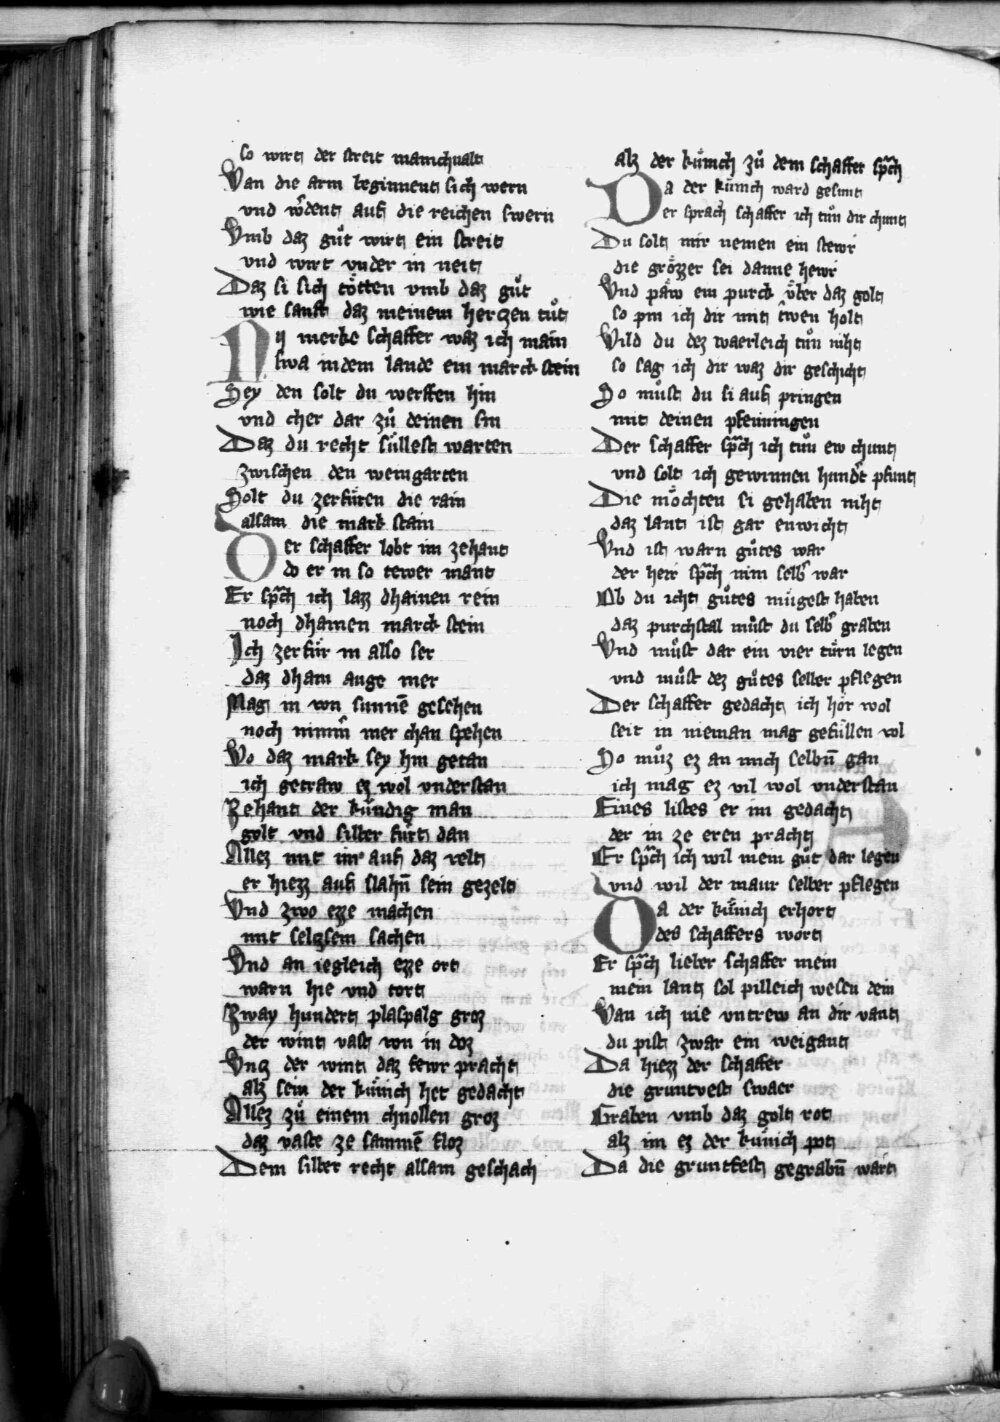 so wirt der streit manichualt
Wan die arm beginnent sich wern
vnd wͦdent auf die reichen swern
Vmb daz guͤt wirt ein streit
vnd wirt vnder in neit
Daz si sich toͤtten vmb daz guͤt
wie sanft daz meinem herczen tuͦt
Nv merke schaffer waz ich main
swa in dem lande ein march stein
Sey den solt du werffen hin
vnd cher dar zuͦ deinen sin
Daz du recht suͤllest warten
zwischen den weingarten
Solt du zerfuͤren die rain
alsam die mark stain
Der schaffer lobt im zehant
do er in so tewer mant
Er sp̄ch ich lazz dhainen rein
noch dhainen march stein
Ich zerfuͤr in also ser
daz dham auge mer
Mag in von sunnē gesehen
noch nimm̄ mer chan spehen
Wo daz mark sey hin getan
ich getraw ez wol vnderstan
Zehant der kuͤndig man
golt vnd silber fuͤrt dan
Allez mit im auf daz velt
er hiezz auf slahn̄ sein gezelt
Vnd zwo ezze machen
mit selczsem sachen
Vnd an iegleich ezze ort
warn hie vnd dort
Zway hundert plaspalg groz
der wint vast von in doz
Vncz der wint daz fewr pracht
alz sein der kuͤnich het gedacht
Allez zuͦ einem chnollen groz
daz vaste ze samme floz
Dem silber recht alsam geschach
alz der kuͤnich zuͦ dem schaffer sp̄ch
Da der kuͤnich ward gesunt
er sprach schaffer ich tuͦn dir chunt
Du solt mir nemen ein stewr
die groͤzzer sei danne hewr
Vnd paͤw ein purck vͤber daz golt
so pin ich dir mit trwen holt
Wild du dez waerleich tuͦn niht
so sag ich dir waz dir geschicht
So muͦst du si auf pringen
mit deinen pfenningen
Der schaffer sp̄ch ich tuͦn ew chunt
vnd solt ich gewinnen hundͤt pfunt
Die moͤchten si gehaben niht
daz lant ist gar enwicht
Vnd ist warn guͦtes war
der herr sp̄ch nim selb̓ war
Ob du icht guͦtes muͤgest haben
daz purchstal muͦst du selb̓ graben
Vnd muͦst dar ein vier tuͤrn legen
vnd muͦst dez guͦtes selber pflegen
Der schaffer gedacht ich hoͤr wol
seit in nieman mag gefuͤllen vol
So muͦz ez an mich selbn̄ gan
ich mag ez vil wol vnderstan
Eines listes er im gedacht
der in ze eren pracht
Er sp̄ch ich wil mein guͦt dar legen
vnd wil der maur selber pflegen
Da der kuͤnich erhort
des schaffers wort
Er sp̄ch lieber schaffer mein
mein lant sol pilleich wesen dein
Wan ich nie vntrew an dir vant
du pist zwar ein weigant
Da hiezz der schaffer
die gruntvest swaer
Graben vmb daz golt rot
alz im ez der kuͤnich pot
Da die gruntfest gegrabn̄ wart